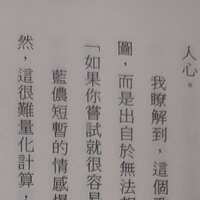 人心。
我瞭解到，這個
圖，而是出自於無法
「如果你嘗試就很容易
藍儂短暫的情感
然，這很難量化計算，